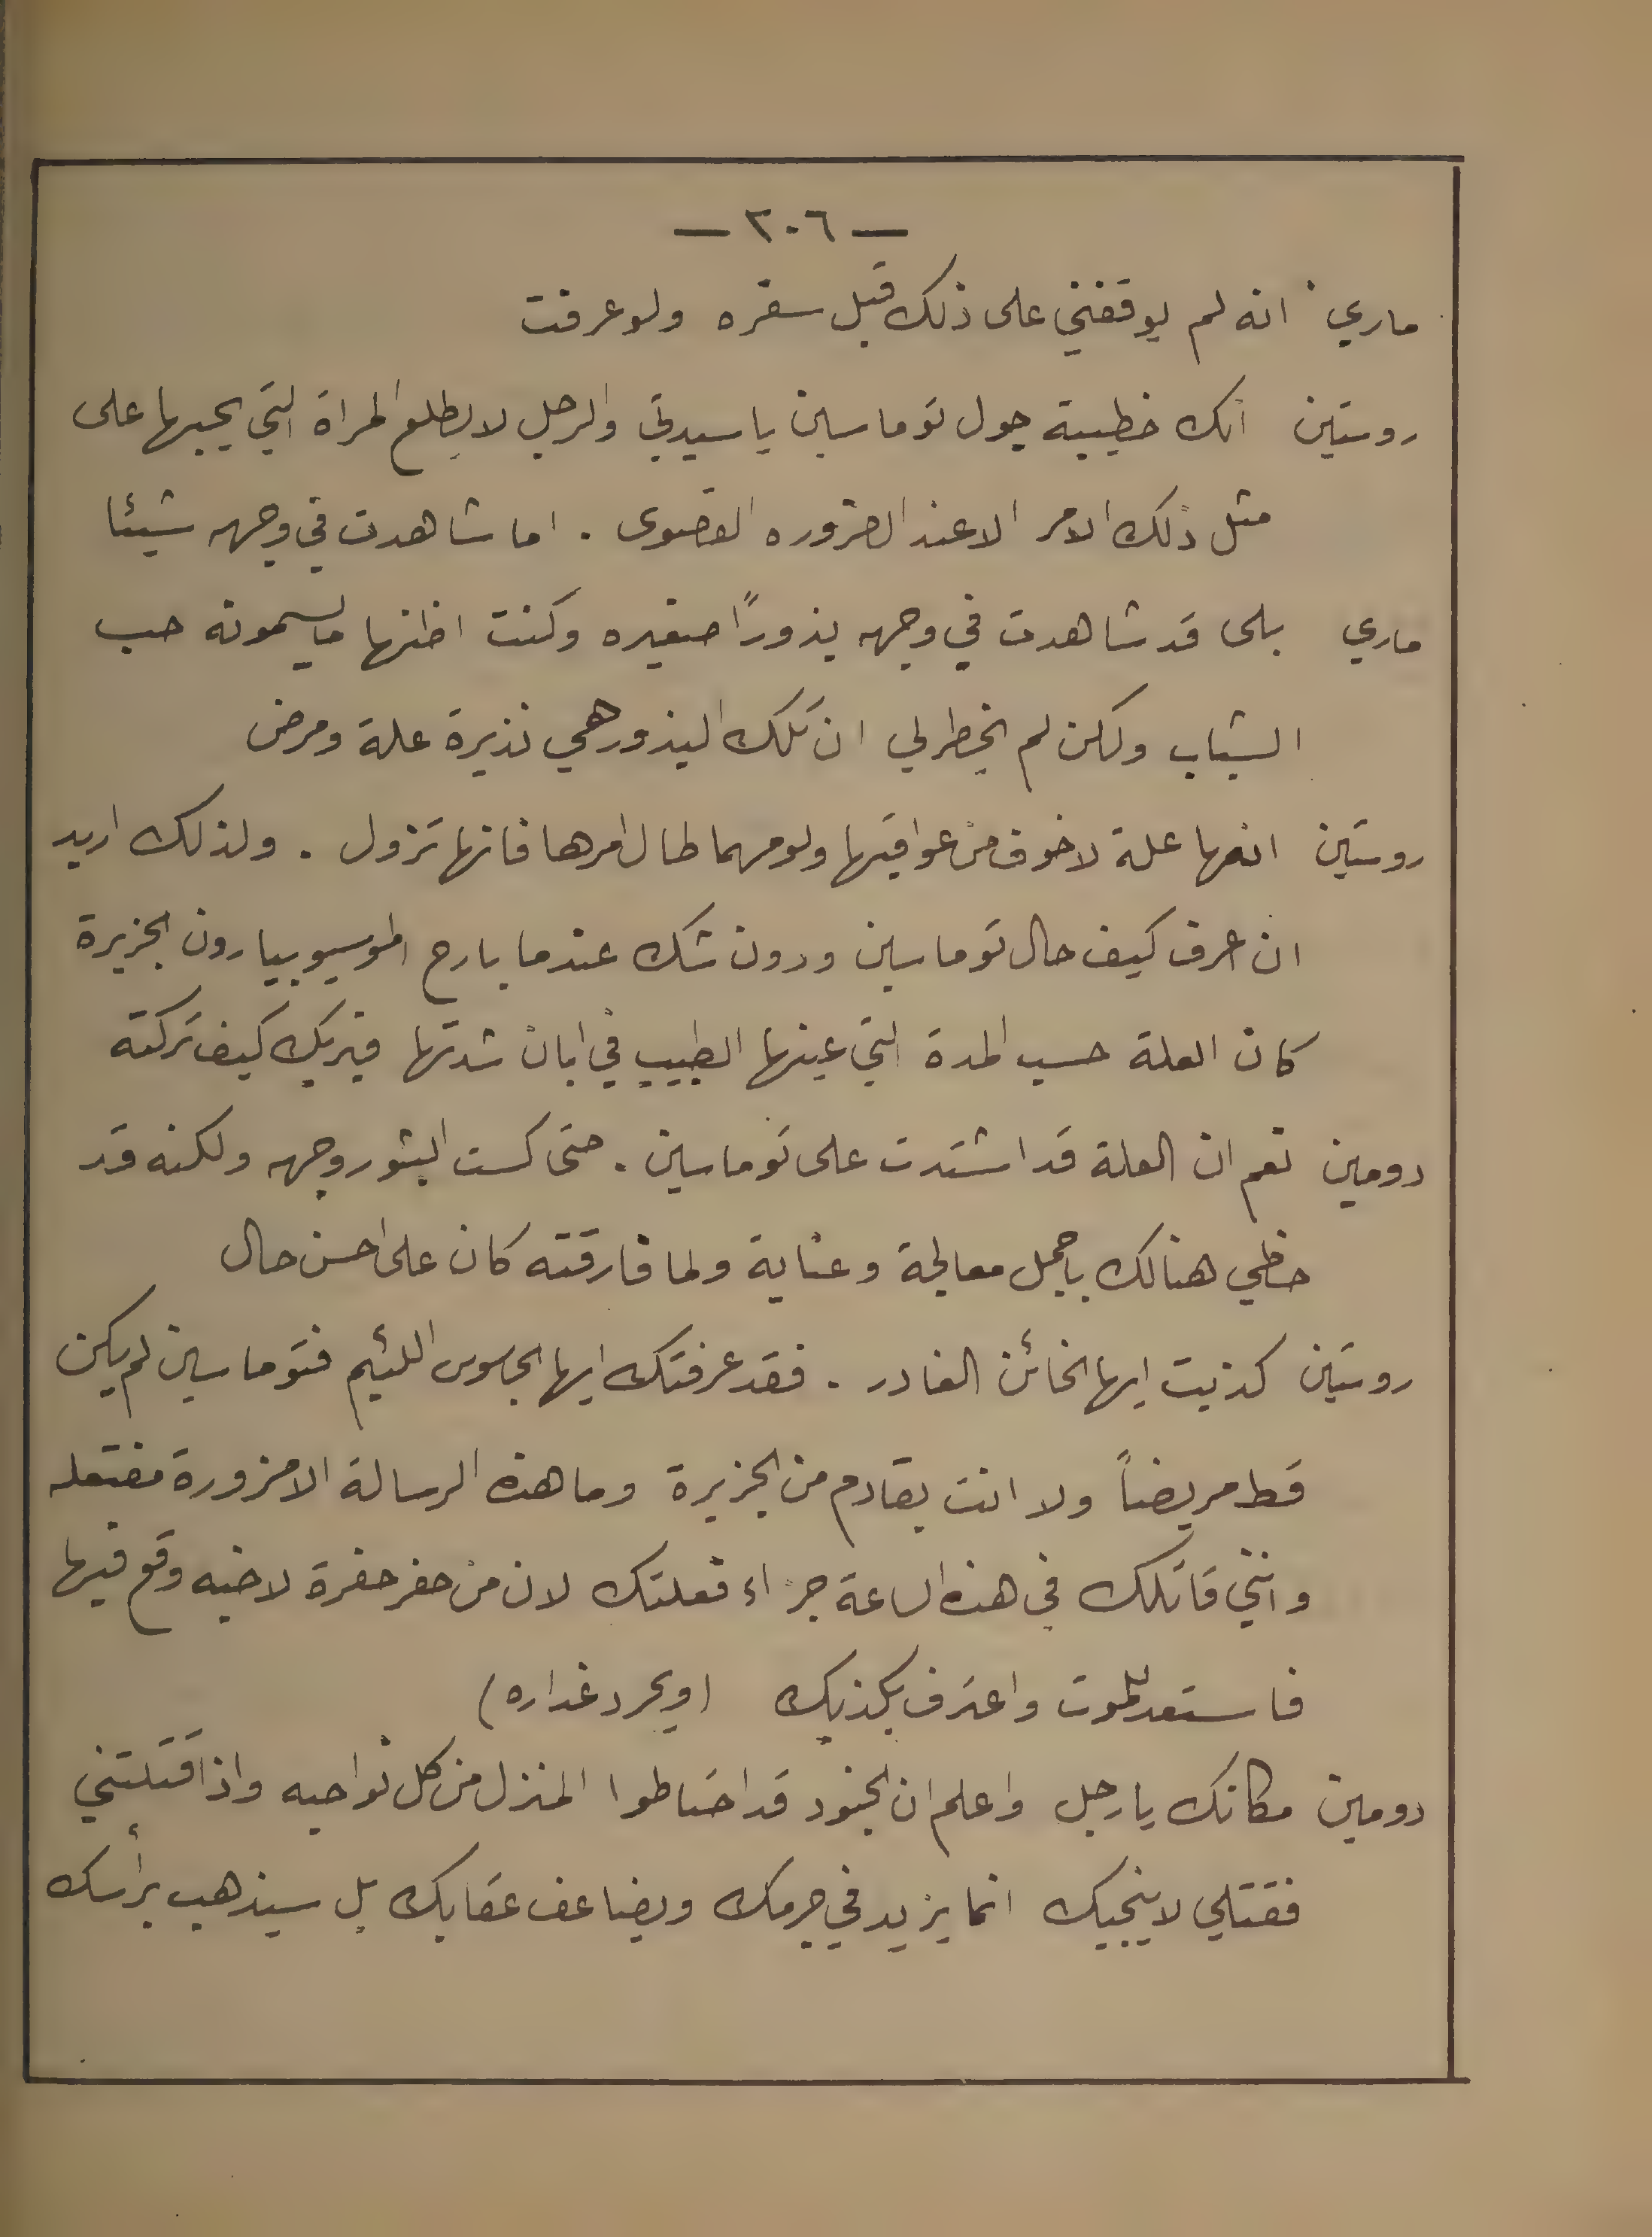 — ٣٠٦ —
ماري انه لم يوقفني على ذلك قبل سفره ولو عرفت
روستين انك خطيبة جول توماسين يا سيدتي والرجل لا يطلع المراة التي يحبها على
مثل ذلك الامر الا عند الضروره القصوى . اما شاهدت في وجهه شيئا
ماري بلى قد شاهدت في وجهه بذورًا صغيره وكنت اظنها ما يسمونه حب
الشباب ولكن لم يخطر لي ان تلك البذور هي نذيرة علة ومرض
روستين انها علة لا خوف من عواقبها ولو مهما طال امرها فانها تزول . ولذلك اريد
ان اعرف كيف حال توماسين ودون شك عندما بارح الموسيو بيارون الجزيرة
كان العلة حسب المدة التي عينها الطبيب في ابان شدتها فبربك كيف تركته
دومين نعم ان العلة قد اشتدت على توماسين . حتى كست البثور وجهه ولكنه قد
حظي هنالك باجمل معالجة وعناية ولما فارقته كان على احسن حال
روستين كذبت ايها الخائن الغادر . فقد عرفتك ايها الجاسوس اللئيم فتوماسين لم يكن
قط مريضاً ولا انت بقادم من الجزيرة وما هذه الرسالة الا مزورة مفتعله
وانني قاتلك في هذه الساعة جزاء فعلتك لان من حفر حفرة لاخيه وقع فيها
فاستعد للموت واعترف بكذبك (ويجرد غداره)
دومين مكانك يا رجل واعلم ان الجنود قد احتاطوا المنزل من كل نواحيه واذا قتلتني
فقتلي لا ينجيك انما يزيد في جرمك ويضاعف عقابك بل سيذهب برأسك